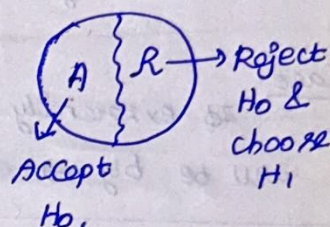 A
R
Reject
H0 &
choose
H1
Accept
H0.